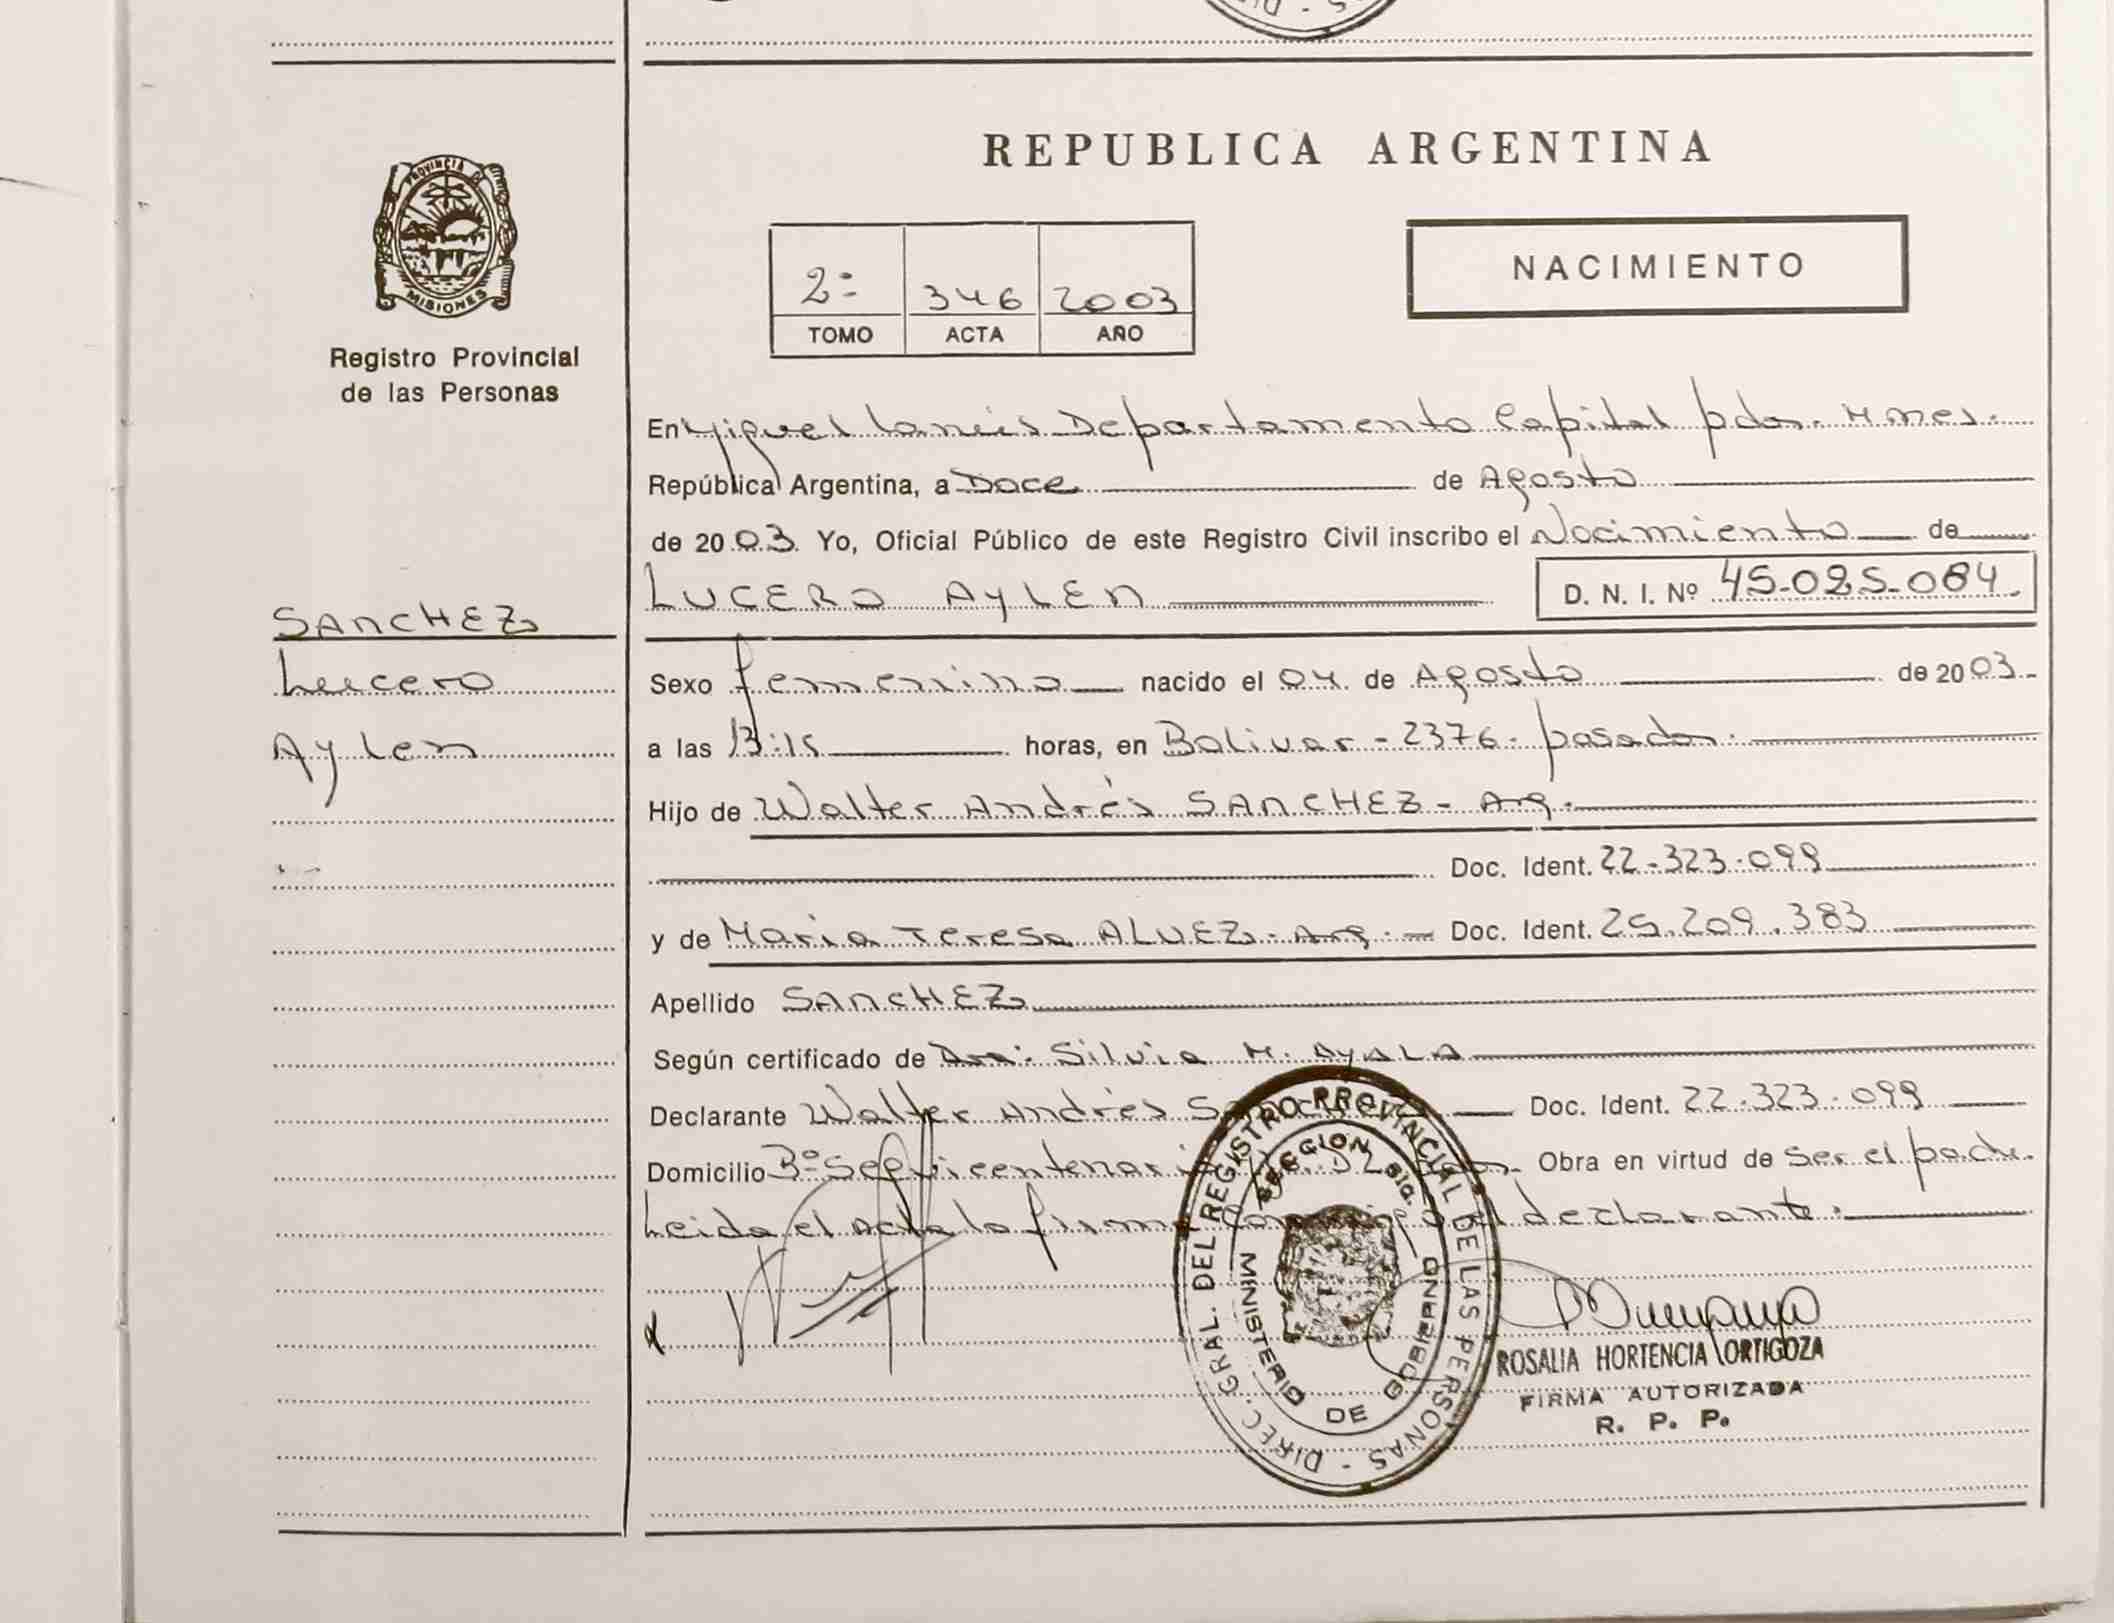 REPUBLICA ARGENTINA
PROVINCIA DE
MISIONES
Registro Provincial
de las Personas
NACIMIENTO
2º 346 2003
TOMO ACTA AÑO
En Miguel Lanús Departamento Capital pdas. Mnes.
República Argentina, a Doce de Agosto
de 2003. Yo, Oficial Público de este Registro Civil inscribo el Nacimiento de
LUCERO AYLEN D. N. I. Nº 45.025.064.
SANCHEZ
Lucero
Aylen
Sexo femenino nacido el 04. de Agosto de 2003.
a las 13:15 horas, en Bolivar - 2376 - posadas.
Hijo de Walter Andrés SANCHEZ - Arg.
Doc. Ident. 22.323.099
y de Maria Teresa ALVEZ - Arg. - Doc. Ident. 25.209.383
Apellido SANCHEZ
Según certificado de Dra. Silvia M. AYALA
Declarante Walter Andrés Doc. Ident. 22.323.099
Domicilio Obra en virtud de Ser el padre.
Leida el Acta la firma conmigo el declarante.
DIREC. GRAL. DEL REGISTRO PROVINCIAL DE LAS PERSONAS -
SECCION
MINISTERIO DE GOBIERNO
ROSALIA HORTENCIA ORTIGOZA
FIRMA AUTORIZADA
R. P. P.